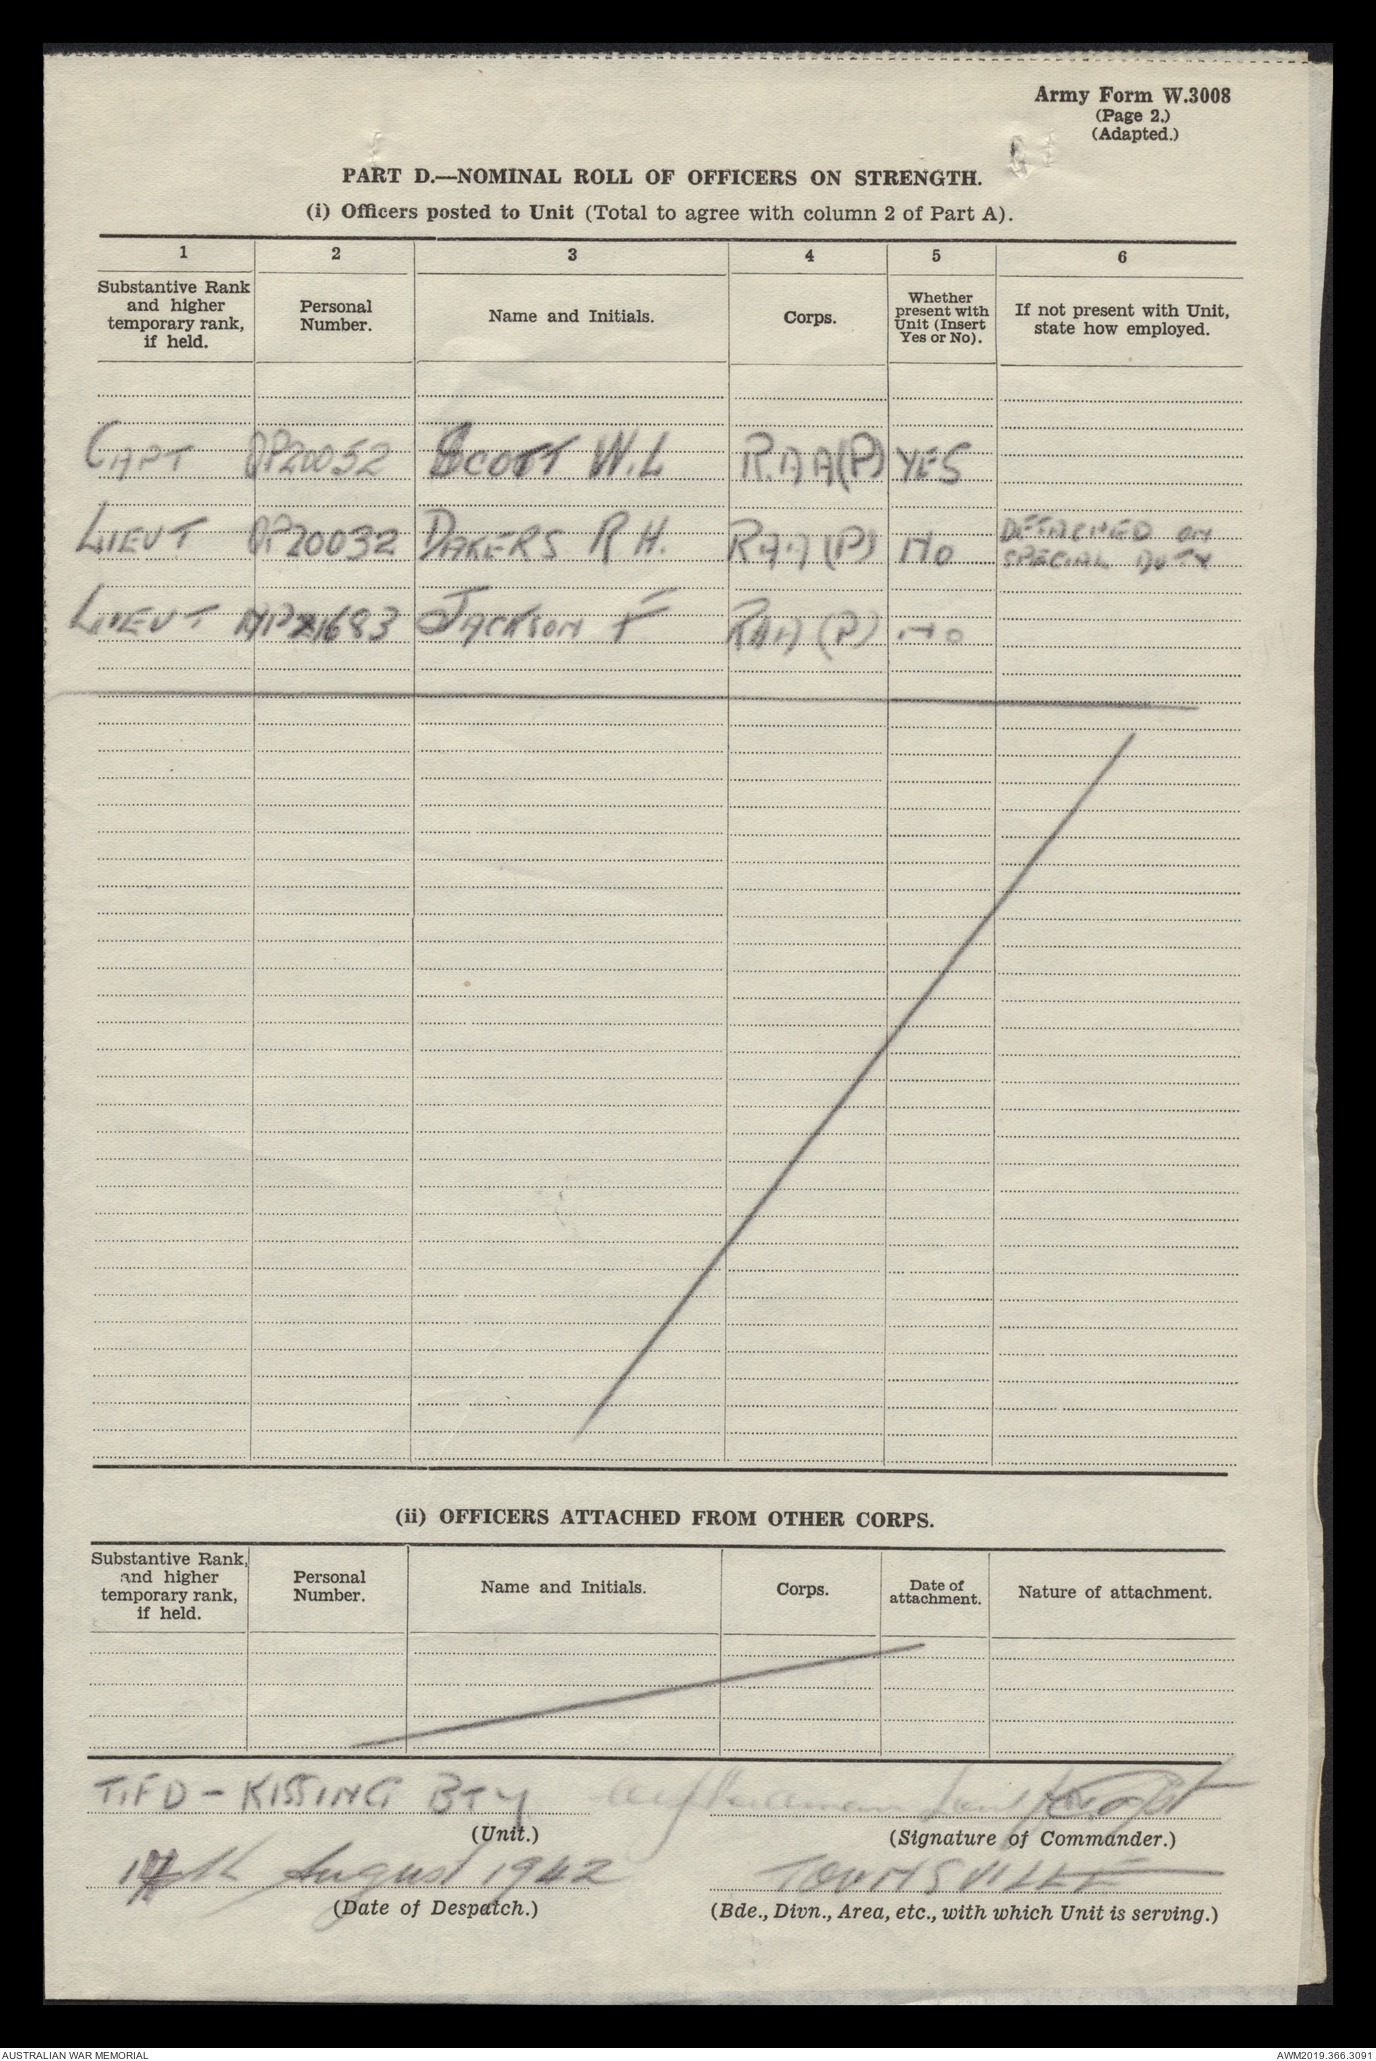 Army Form W.3008
(Page 2.)
(Adapted.)
PART D.—NOMINAL ROLL OF OFFICERS ON STRENGTH.
(i) Officers posted to Unit (Total to agree with column 2 of Part A).
1 2 3 4 5 6
Substantive Rank and higher temporary rank, if held.
Personal Number.
Name and Initials.
Corps.
Whether present with Unit (Insert Yes or No).
If not present with Unit, state how employed.
CAPT QP20052 SCOTT W.L R.A A(P) YES
LIEUT QP20032 DAKERS R H. RAA (P) No DETACHED ON
SPECIAL DUTY
LIEUT JACKSON F RAA (P) No
(ii) OFFICERS ATTACHED FROM OTHER CORPS.
Substantive Rank, and higher temporary rank, if held.
Personal Number.
Name and Initials.
Corps.
Date of attachment.
Nature of attachment.
KISSING BTY
(Unit.)
(Signature of Commander.)
August 1942
TOWNSVILLE
(Date of Despatch.)
(Bde., Divn., Area, etc., with which Unit is serving.)
AUSTRALIAN WAR MEMORIAL
AWM2019.366.3091